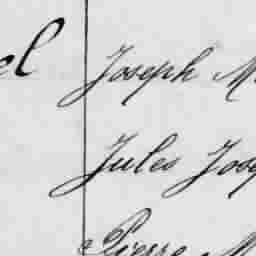 el Joseph M
Jules Jose
Pierre M